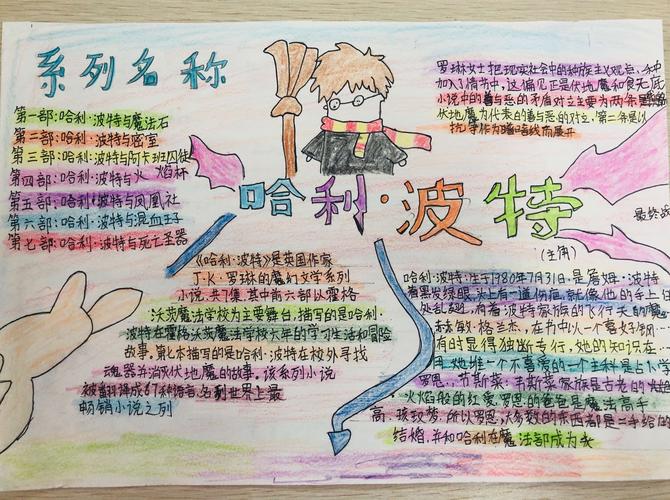 系列名称
第一部:哈利·波特与魔法石
第二部:哈利·波特与密室
第三部:哈利·波特与阿卡班囚徒
第四部:哈利·波特与火焰杯
第五部:哈利·波特与凤凰社
第六部:哈利·波特与混血王子
第七部:哈利·波特与死亡圣器
罗琳女士把现实社会中的种族主义观点
加入了情节中,这偏见正是伏地魔和食死
小说中的善与恶的矛盾对立主要为两条
伏地魔为代表的善与恶的对立,第二条是以
抗争作为暗线而展开
哈利·波特
最终战
(主角)
《哈利·波特》是英国作家
J·K·罗琳的魔幻文学系列
小说,共7集,其中前六部以霍格
沃茨魔法学校为主要舞台,描写的是哈利·
波特在霍格沃茨魔法学校六年的学习生活和冒险
故事,第七本描写的是哈利·波特在校外寻找
魂器并消灭伏地魔的故事,该系列小说
被翻译成67种语言,名列世界上最
畅销小说之列
哈利·波特,生于1980年7月31日,是詹姆·波特
着黑发绿眼,头上有一道伤疤,就像他的手上
处乱翘,有着波特家族的飞行天的魔
赫敏·格兰杰,在书中以一个喜好钢
有时显得独断专行,她的知识在
田,她唯一个不喜爱的一个主科是占卜学
罗恩·韦斯莱,韦斯莱家族是古老的
火焰般的红发罗恩的爸爸是魔法高手
高,孩双梦,所以罗恩大多数的东西都是二手给的
结婚,并和哈利在魔法部成为